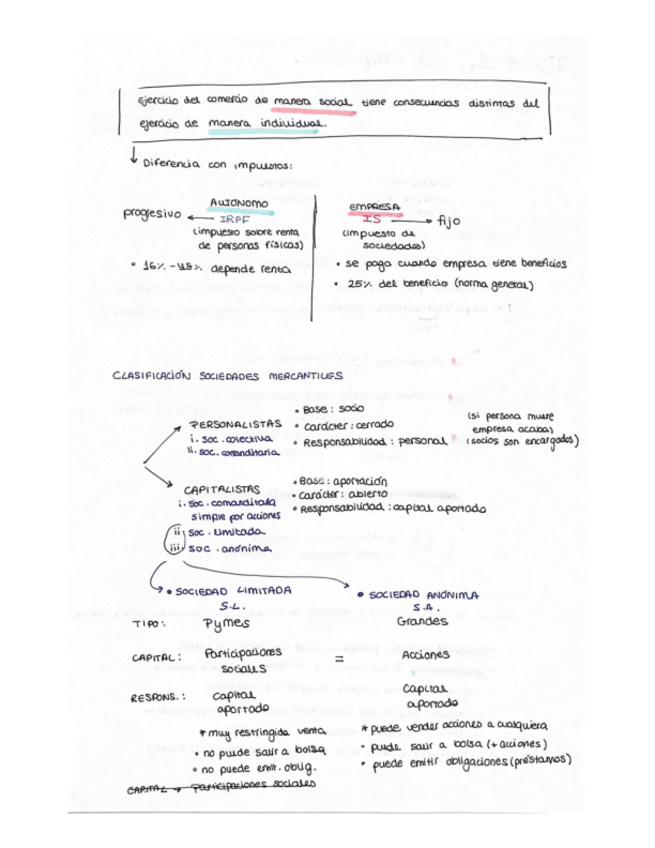 Ejercicio del comercio de manera social tiene consecuencias distintas del
ejercicio de manera individual.
Diferencia con impuestos:
AUTÓNOMO
progresivo ← IRPF
(impuesto sobre renta
de personas físicas)
• 16% - 48% depende renta
EMPRESA
IS → fijo
(impuesto de
sociedades)
• se paga cuando empresa tiene beneficios
• 25% del beneficio (norma general)
CLASIFICACIÓN SOCIEDADES MERCANTILES
PERSONALISTAS
i. soc. colectiva
ii. soc. comanditaria
• Base: socio
• carácter: cerrado
• Responsabilidad: personal
(si persona muere
empresa acaba)
(socios son encargados)
CAPITALISTAS
i. soc. comanditaria
simple por acciones
ii. soc. limitada
iii. soc. anónima
• Base: aportación
• carácter: abierto
• Responsabilidad: capital aportado
• SOCIEDAD LIMITADA
S.L.
• SOCIEDAD ANÓNIMA
S.A.
TIPO: Pymes
Grandes
CAPITAL: Participaciones
sociales
=
Acciones
RESPONS.: capital
aportado
capital
aportado
* muy restringida venta
• no puede salir a bolsa
• no puede emit. oblig.
* puede vender acciones a cualquiera
• puede salir a bolsa (+ acciones)
• puede emitir obligaciones (préstamos)
CAPITAL → Participaciones sociales